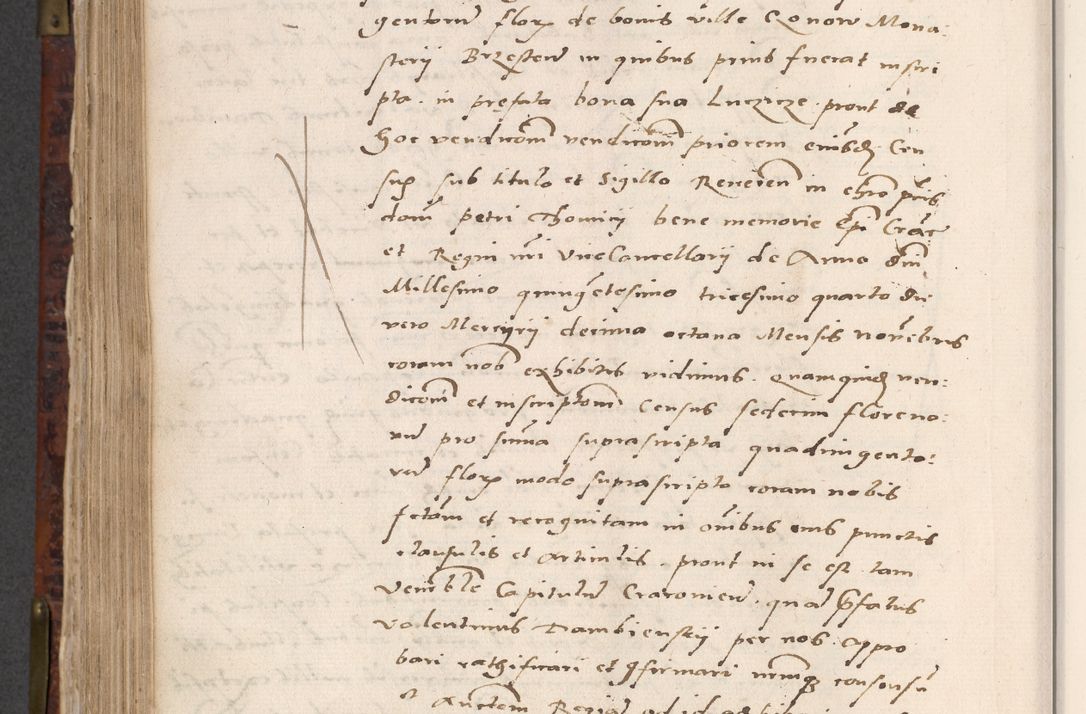 gentorũ florꝫ de bonis ville Qonow Mona:
sterij Brzesteñ in quibus prius fuerat inscri
pta in prefata bona sua Luczicze prout de
hoc vendicõm vendicõm priorem eiusdẽ Cen
sus sub titulo et Sigillo Reveren̄ in chrõ p̃ris
dom̃ petri Thomicij bene memorie Epĩ Crac̃
et Regni nr̃i ViceCancellarij de Anno dñi
Millesimo quingẽtesimo tricesimo quarto die
vero Mercurij decima octava Mensis novẽbris
coram nob̃ exhibitis vidimus. Quamquidẽ ven:
dicõm et inscriptõm Census sedecim floreno:
rũ pro sum̃a suprascripta quadringento:
rũ florꝫ modo suprascripto coram nobis
factam et recognitam in om̃ibus eius punctis
clausulis et Articulis prout in se est tam
Ven̄ble Capitulũ Cracovieñ. quã p̃fatus
valentinus Dambienskij per nos Appro
bari rathificari et cõfirmari nrũmqꝫ consensũ
et Auctem̃ Regiã ad id